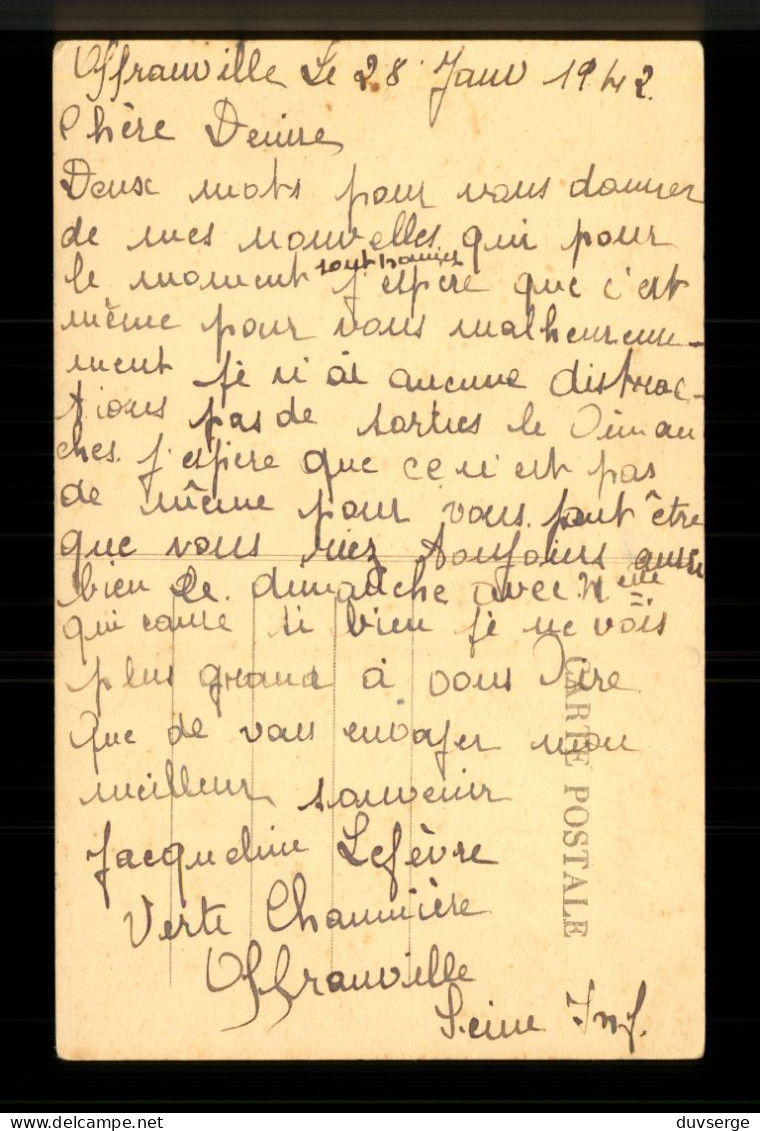 Offranville Le 28 Janv 1942.
Chère Denise
Deux mots pour vous donner
de mes nouvelles qui pour
le moment sont bonnes j'espère que c'est
même pour vous malheureuse-
ment je n'ai aucune distrac-
tions pas de sorties le Diman
ches. j'espère que ce n'est pas
de même pour vous. peut être
que vous riez toujours aussi
bien le dimanche avec Melle
qui cause si bien je ne vois
plus grand à vous dire
Que de vous envoyer mon
meilleur souvenir
Jacqueline Lefèvre
Verte Chaumière
Offranville
Seine Inf.
CARTE POSTALE
delcampe.net
duvserge